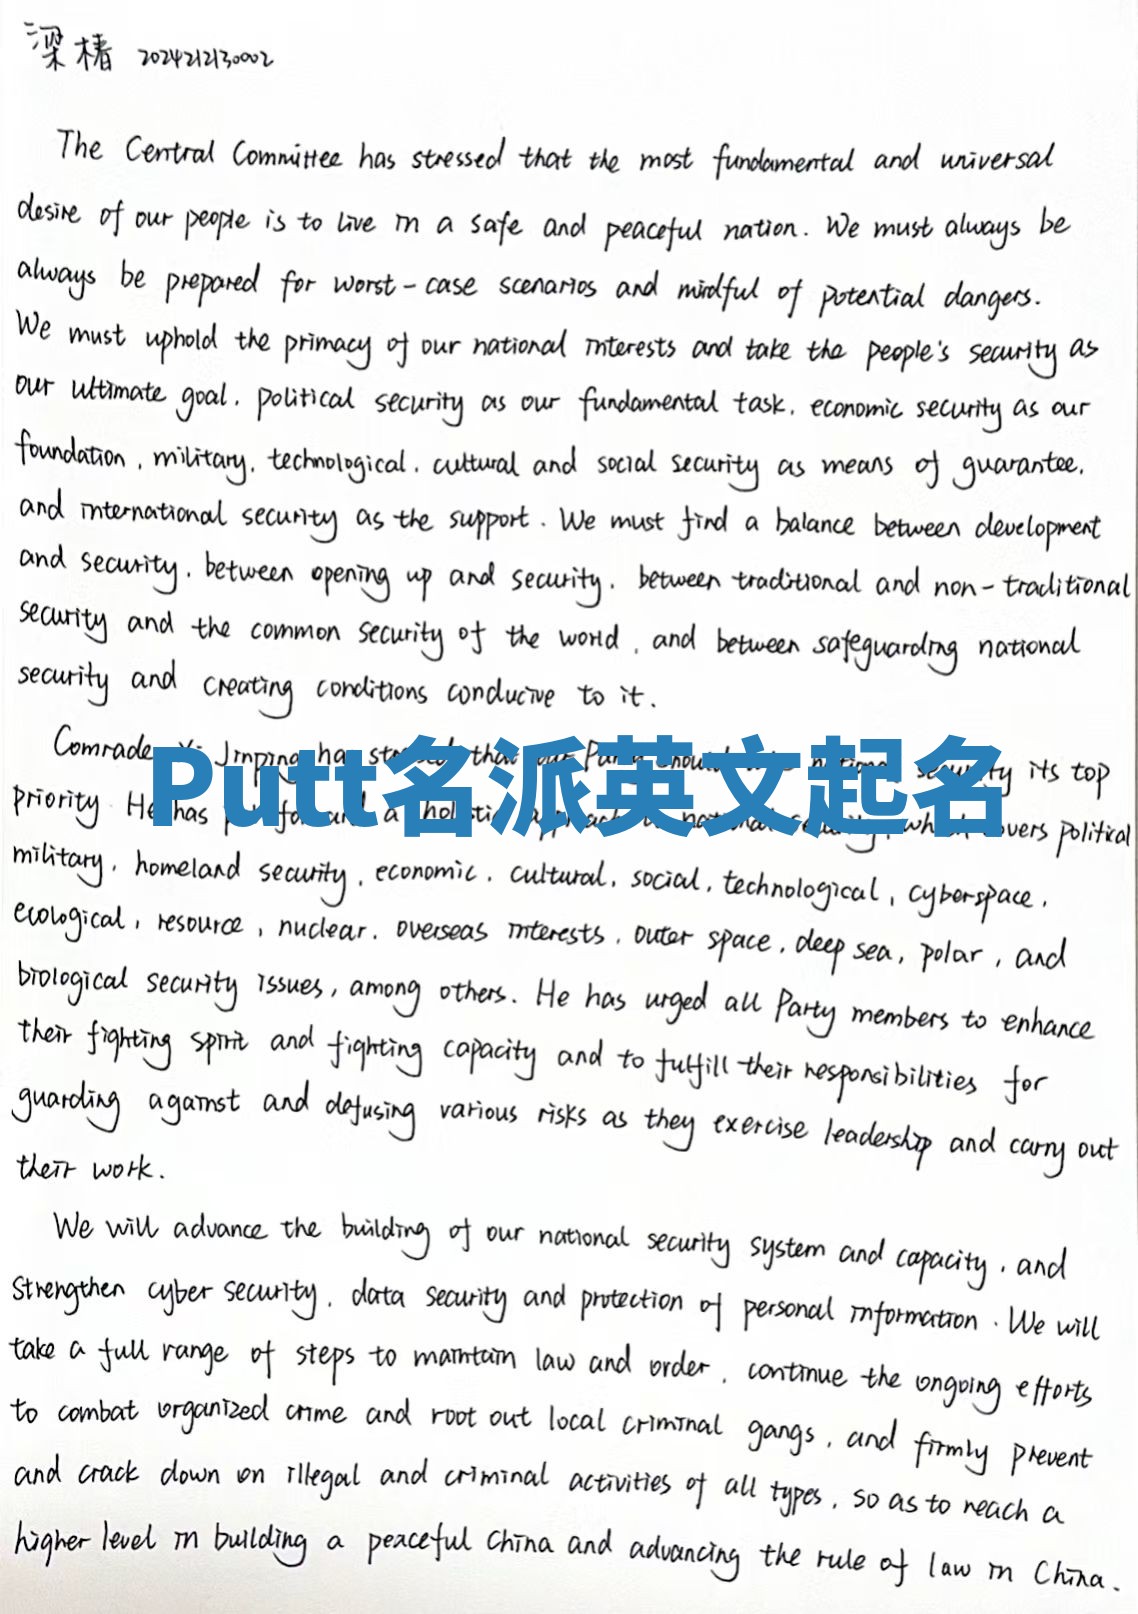 梁椿 2024212130002
The Central Committee has stressed that the most fundamental and universal
desire of our people is to live in a safe and peaceful nation. We must always be
always be prepared for worst-case scenarios and mindful of potential dangers.
We must uphold the primacy of our national interests and take the people's security as
our ultimate goal, political security as our fundamental task, economic security as our
foundation, military, technological, cultural and social security as means of guarantee,
and international security as the support. We must find a balance between development
and security, between opening up and security, between traditional and non-traditional
security and the common security of the world, and between safeguarding national
security and creating conditions conducive to it.
Comrade Jinping has that its top
Putt名派英文起名
priority. He has a political
military, homeland security, economic, cultural, social, technological, cyberspace,
ecological, resource, nuclear, overseas interests, outer space, deep sea, polar, and
biological security issues, among others. He has urged all Party members to enhance
their fighting spirit and fighting capacity and to fulfill their responsibilities for
guarding against and defusing various risks as they exercise leadership and carry out
their work.
We will advance the building of our national security system and capacity, and
strengthen cyber security, data security and protection of personal information. We will
take a full range of steps to maintain law and order, continue the ongoing efforts
to combat organized crime and root out local criminal gangs, and firmly prevent
and crack down on illegal and criminal activities of all types, so as to reach a
higher level in building a peaceful China and advancing the rule of law in China.